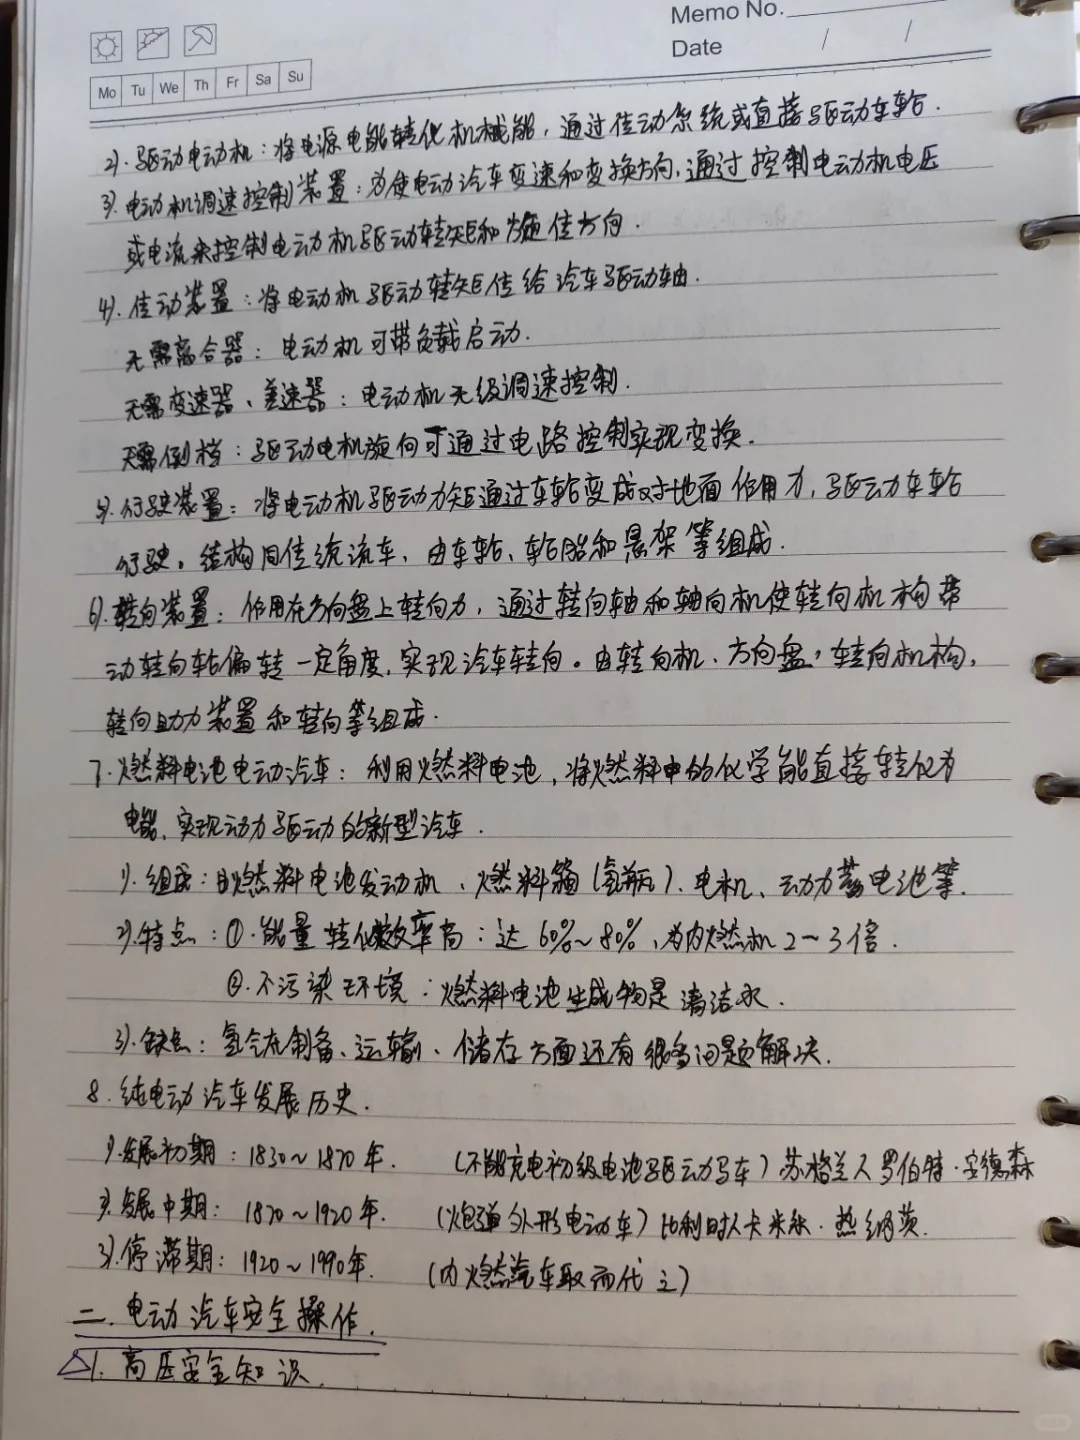 Memo No.
Date / /
Mo Tu We Th Fr Sa Su
2). 驱动电动机：将电源电能转化机械能，通过传动系统或直接驱动车轮.
3). 电动机调速控制装置：为使电动汽车变速和变换方向，通过控制电动机电压
或电流来控制电动机驱动转矩和旋传方向.
4). 传动装置：将电动机驱动转矩传给汽车驱动轴.
无需离合器：电动机可带负载启动.
无需变速器、差速器：电动机无级调速控制.
无需倒档：驱动电机旋向可通过电路控制实现变换.
5). 行驶装置：将电动机驱动力矩通过车轮变成对地面作用力，驱动车轮
行驶。结构同传统流车、由车轮、轮胎和悬架等组成.
6). 转向装置：作用在方向盘上转向力，通过转向轴和轴向机使转向机构带
动转向轮偏转一定角度，实现汽车转向。由转向机、方向盘，转向机构，
转向助力装置和转向等组成.
7. 燃料电池电动汽车：利用燃料电池，将燃料中的化学能直接转化为
电能，实现动力驱动的新型汽车.
1). 组成：由燃料电池发动机、燃料箱（氢瓶）、电机、动力蓄电池等.
2). 特点：①. 能量转化效率高：达60%~80%，为内燃机2~3倍.
②. 不污染环境：燃料电池生成物是清洁水.
3). 缺点：氢气在制备、运输、储存方面还有很多问题解决.
8. 纯电动汽车发展历史.
1). 发展初期：1830~1870年. （不能充电初级电池驱动马车）苏格兰人罗伯特·安德森
2). 发展中期：1870~1920年. （炮弹外形电动车）比利时人卡米乐·热纳茨.
3). 停滞期：1920~1990年. （内燃汽车取而代之）
二. 电动汽车安全操作.
△1. 高压安全知识.